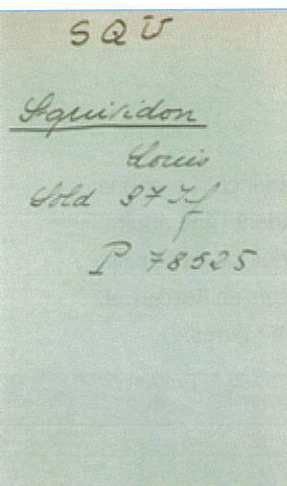 SQU
Squividon
Louis
Sold 37 Inf
P 78525